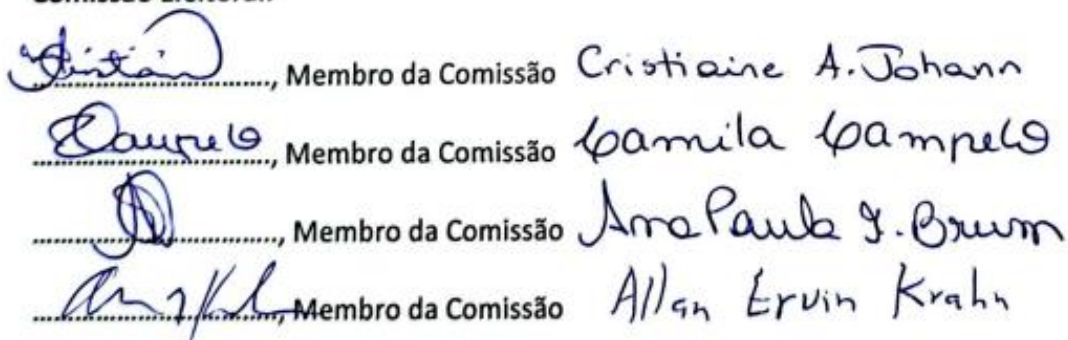 Cristian, Membro da Comissão Cristiaine A. Johann
Campelo, Membro da Comissão Camila Campelo
, Membro da Comissão Ana Paula I. Brum
, Membro da Comissão Allan Ervin Krahn